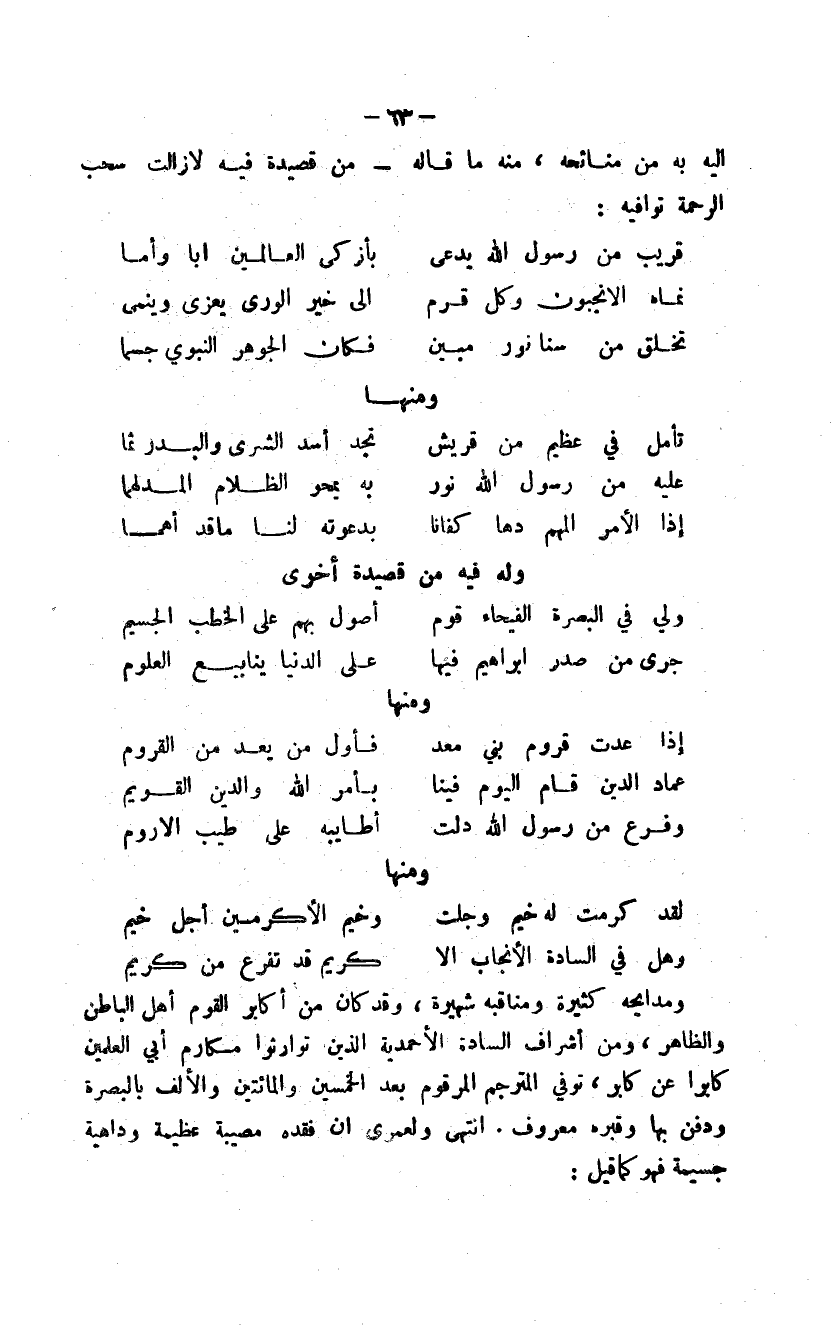 — ٦٣ —
اليه به من منائحه ، منه ما قاله — من قصيدة فيه لازالت سحب
الرحمة توافيه :
قريب من رسول الله يدعى بأزكى العالمين ابا وأما
نماه الانجبون وكل قرم الى خير الورى يعزى وينمى
تخلق من سنا نور مبين فكان الجوهر النبوي جسما
ومنها
تأمل في عظيم من قريش تجد أسد الشرى والبدر تما
عليه من رسول الله نور به يمحو الظلام المدلهما
إذا الأمر المهم دها كفانا بدعوته لنا ماقد أهما
وله فيه من قصيدة أخوى
ولي في البصرة الفيحاء قوم أصول بهم على الخطب الجسيم
جرى من صدر ابراهيم فيها على الدنيا ينابيع العلوم
ومنها
إذا عدت قروم بني معد فأول من يعد من القروم
عماد الدين قام اليوم فينا بأمر الله والدين القويم
وفرع من رسول الله دلت أطايبه على طيب الاروم
ومنها
لقد كرمت له خيم وجلت وخيم الأكرمين أجل خيم
وهل في السادة الأنجاب الا كريم قد تفرع من كريم
ومدايحه كثيرة ومناقبه شهيرة ، وقد كان من أكابر القوم أهل الباطن
والظاهر ، ومن أشراف السادة الأحمدية الذين توارثوا مكارم أبي العلمين
كابرا عن كابر ، توفي المترجم المرقوم بعد الخمسين والمائتين والألف بالبصرة
ودفن بها وقبره معروف . انتهى ولعمرى ان فقده مصيبة عظيمة وداهية
جسيمة فهو كماقيل :